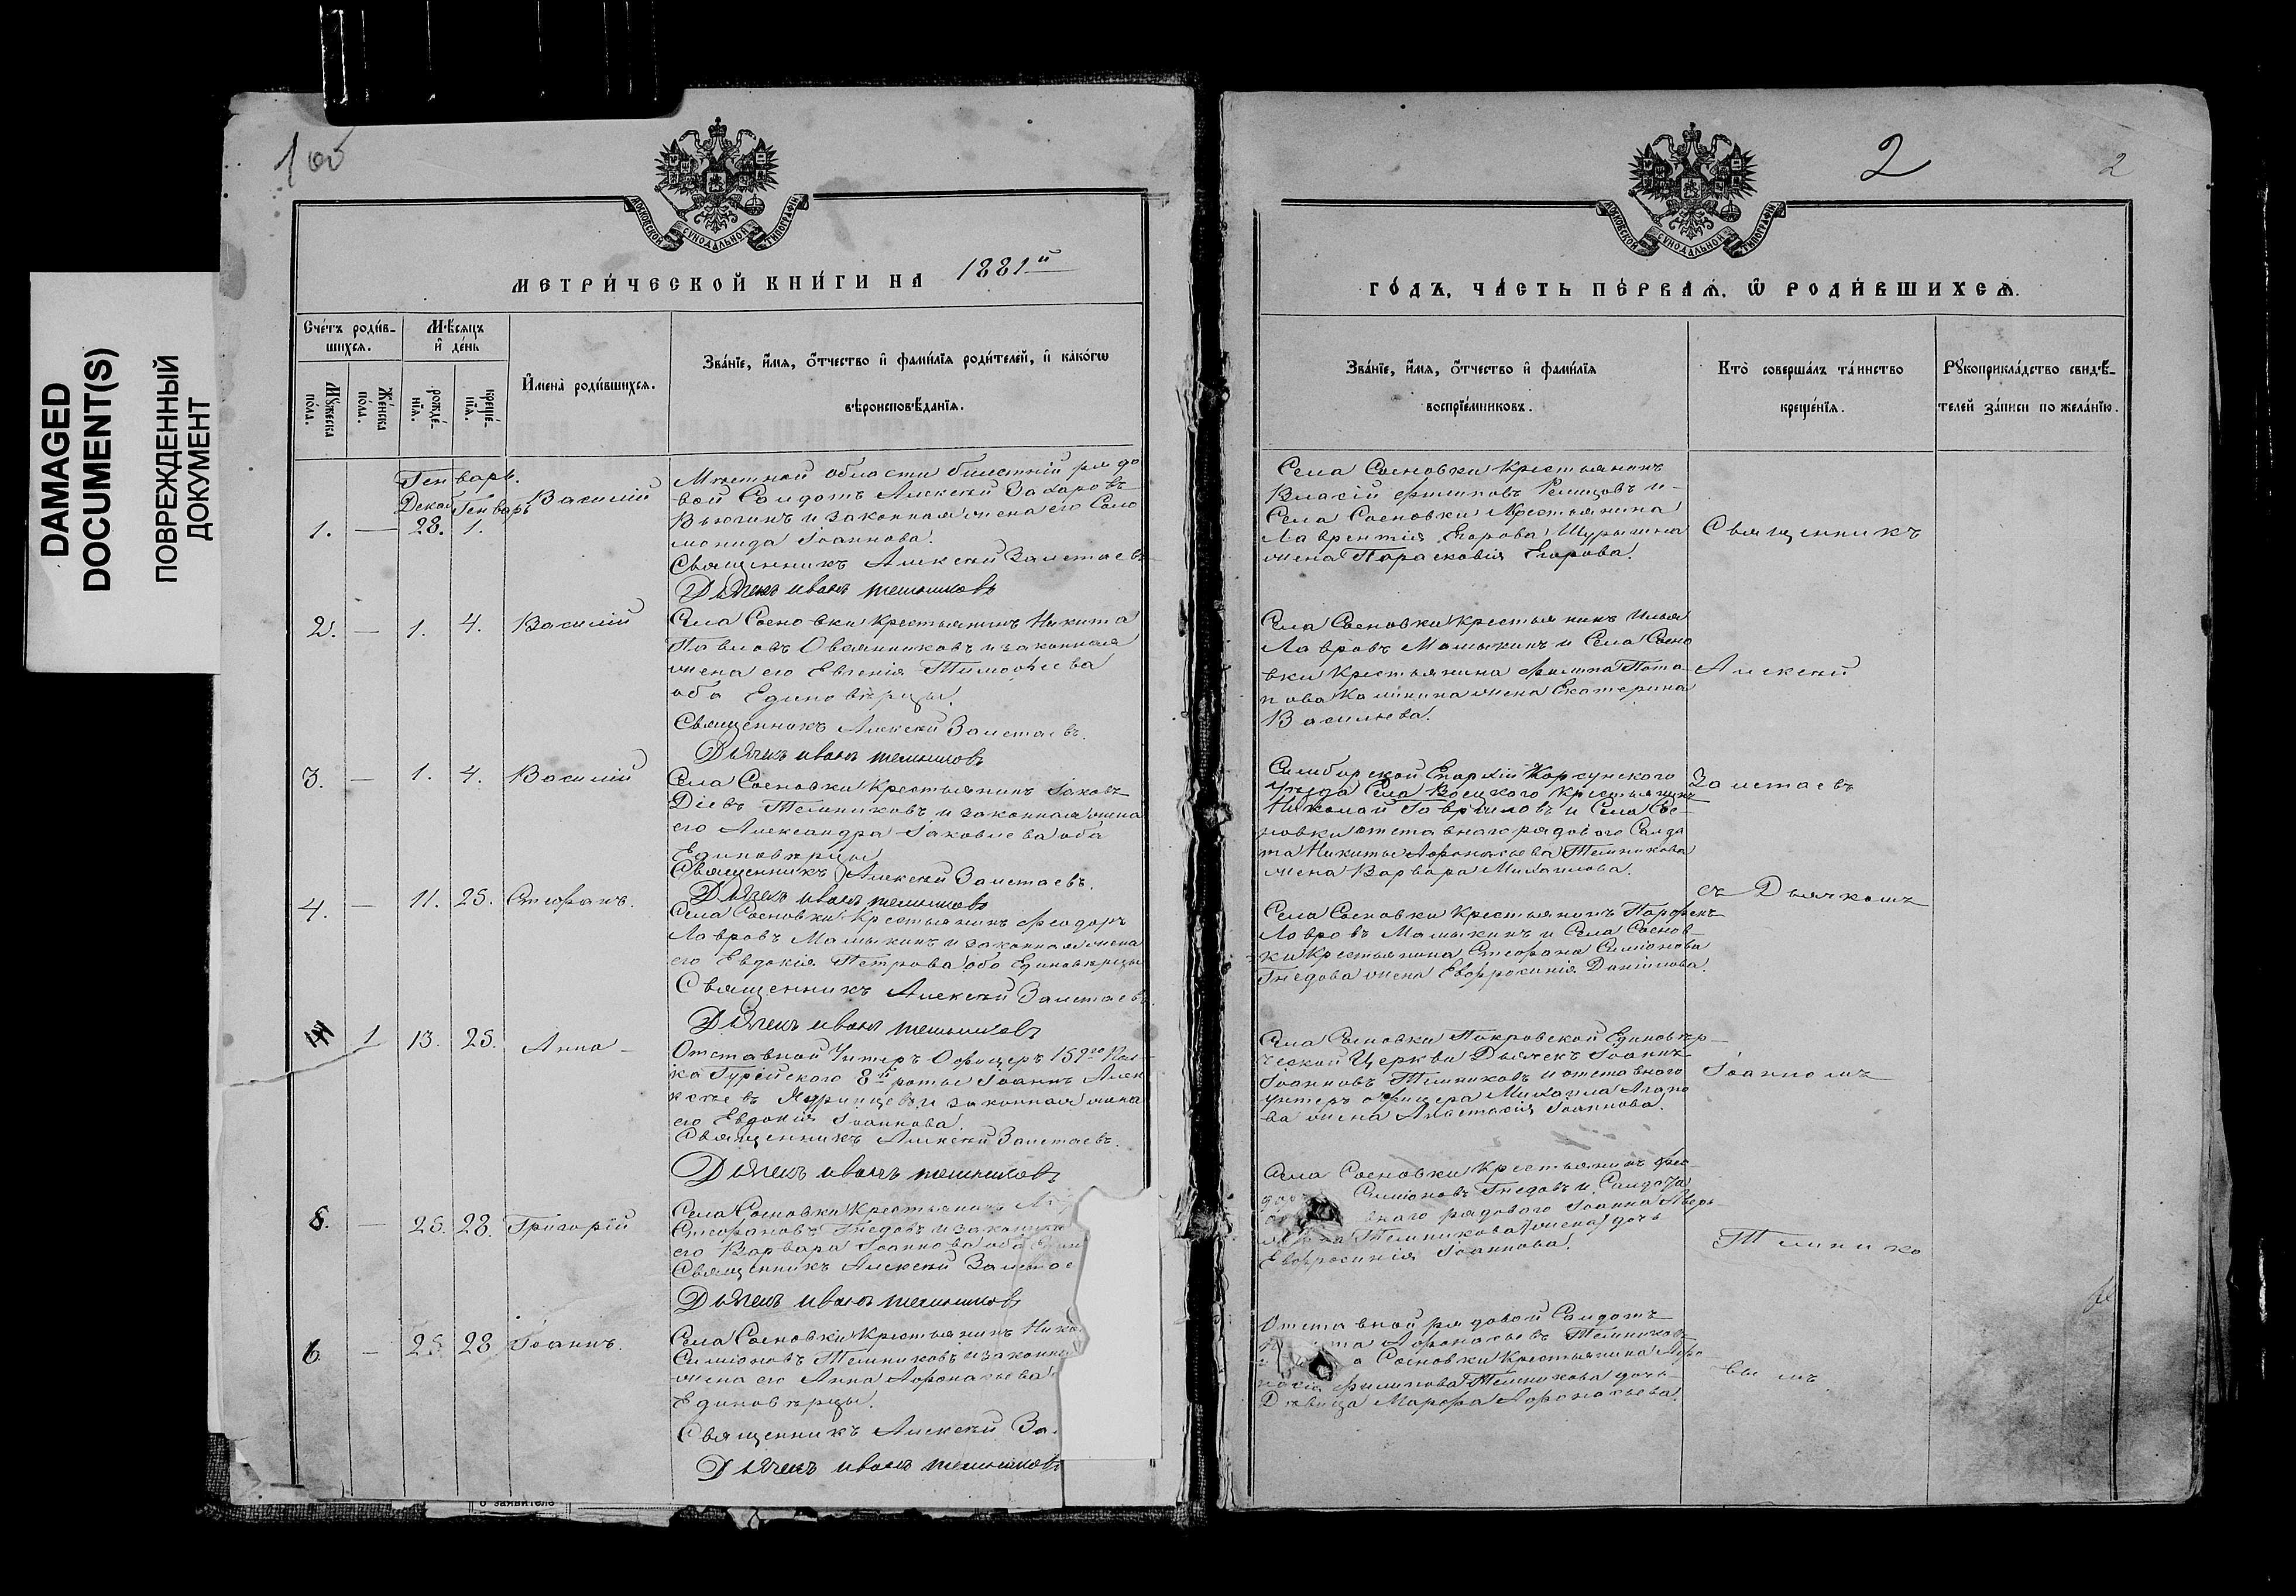 DAMAGED
DOCUMENT(S)
ПОВРЕЖДЕННЫЙ
ДОКУМЕНТ
МОСКОВСКОЙ СѴНОДАЛЬНОЙ ТИПОГРАФІИ
МЕТРИ́ЧЕСКОЙ КНИ́ГИ НА 1881й
Сче́тъ роди́в-
шихся.
Мꙋ́жеска по́ла.
Же́нска по́ла.
Мѣ́сяцъ
и҆ де́нь
рожде́-нїя.
креще́-нїя.
И҆мена̀ роди́вшихся.
Зва́нїе, и҆́мя, ѻ҆́тчество и҆ фами́лїя роди́телей, и҆ како́гѡ
вѣроисповѣ́данїя.
Генварь.
Декаб Генварь
1. — 28. 1. Василій
Местной области билетній рядо
вой Солдатъ Алексей Захаровъ
Вьюгинъ и законная жена его Соло
монида Іоаннова.
Священникъ Алексей Залетаевъ
Дьячекъ иванъ темниковъ
2. — 1. 4. Василій
Села Сосновки Крестьянинъ Никита
Павловъ Овчинниковъ и законная
жена его Евгенія Тимофеева
оба Единовѣрцы.
Священникъ Алексей Залетаевъ.
Дьячекъ иванъ темниковъ
3. — 1. 4. Василій
Села Сосновки Крестьянинъ Іаковъ
Діевъ Темниковъ и законная жена
его Александра Іаковлева оба
Единоверцы
Священникъ Алексей Залетаевъ.
Дьячекъ иванъ темниковъ
4. — 11. 25. Стефанъ.
Села Сосновки Крестьянинъ Феодоръ
Лавровъ Малыкинъ и законная жена
его Евдокія Петрова оба Единоверцы
Священникъ Алексей Залетаевъ.
Дьячекъ иванъ темниковъ
1 13. 25. Анна
Отставной Унтеръ Офицеръ 159го Пол-
ка Гурійского 8й роты Іоаннъ Алек
сеевъ Ядринцевъ и законная жена
его Евдокія Іоаннова.
Священникъ Алексей Залетаевъ.
Дьячекъ иванъ темниковъ
5. — 25. 28. Григорій
Села Сосновки Крестьянинъ
Стефановъ Гнедовъ и законная
его Варвара Іоаннова оба
Священникъ Алексей Залетае
Дьячекъ иванъ темниковъ
6. — 25. 28 Іоаннъ.
Села Сосновки Крестьянинъ Нико
Симіоновъ Темниковъ и законна
жена его Анна Афонасьева
Единоверцы.
Священникъ Алексей За
Дьячекъ иванъ темниковъ
о заявителе
2
2
МОСКОВСКОЙ СѴНОДАЛЬНОЙ ТИПОГРАФІИ
ГО́ДЪ, ЧА́СТЬ ПЕ́РВАЯ, Ѡ҆ РОДИ́ВШИХСЯ.
Зва́нїе, и҆́мя, ѻ҆́тчество и҆ фами́лїя
воспрїе́мниковъ.
Кто̀ соверша́лъ та́инство
креще́нїя.
Рꙋкоприкла́дство свидѣ́-
телей за́писи по жела́нїю.
Села Сосновки Крестьянинъ
Власій Филиповъ Ремизовъ и
Села Сосновки Крестьянина
Лаврентія Егорова Шурыгина
жена Парасковія Егорова.
Священникъ
Села Сосновки Крестьянинъ Илья
Лавровъ Малыкинъ и Села Сосно
вки Крестьянина Филипа Пота-
пова Калинина жена Екатерина
Васильева.
Алексей
Симбирской Епархіи Корсунского
уезда Села крестьянинъ
Николай Гавриловъ и Села Сос-
новки отставнаго рядового Солда
та Никиты Афонасьева Темникова
жена Варвара Михаилова.
Залетаевъ
Села Сосновки Крестьянинъ Парфенъ
Лавровъ Малыкинъ и Села Соснов-
ки Крестьянина Стефана Симіонова
Гнедова жена Евфросинія Даниилова.
съ Дьячкомъ
Села Сосновки Покровской Единовер-
ческой Церкви Дьячекъ Іоаннъ
Іоанновъ Темниковъ и отставного
унтеръ офицера Михаила Агапо
ва жена Анастасія Іоаннова.
Іоанномъ
Села Сосновки Крестьянинъ Фео-
доръ Симіоновъ Гнедовъ и Солдата
внаго рядового Іоанна Аверь
Темникова дочь
Евфросинія Іоаннова.
Темнико
Отставной рядовой Солдатъ
Афонасьевъ Темниковъ
а Сосновки Крестьянина Афо
насія Филипова Темникова дочь
Девица Марфа Афонасьева.
вымъ